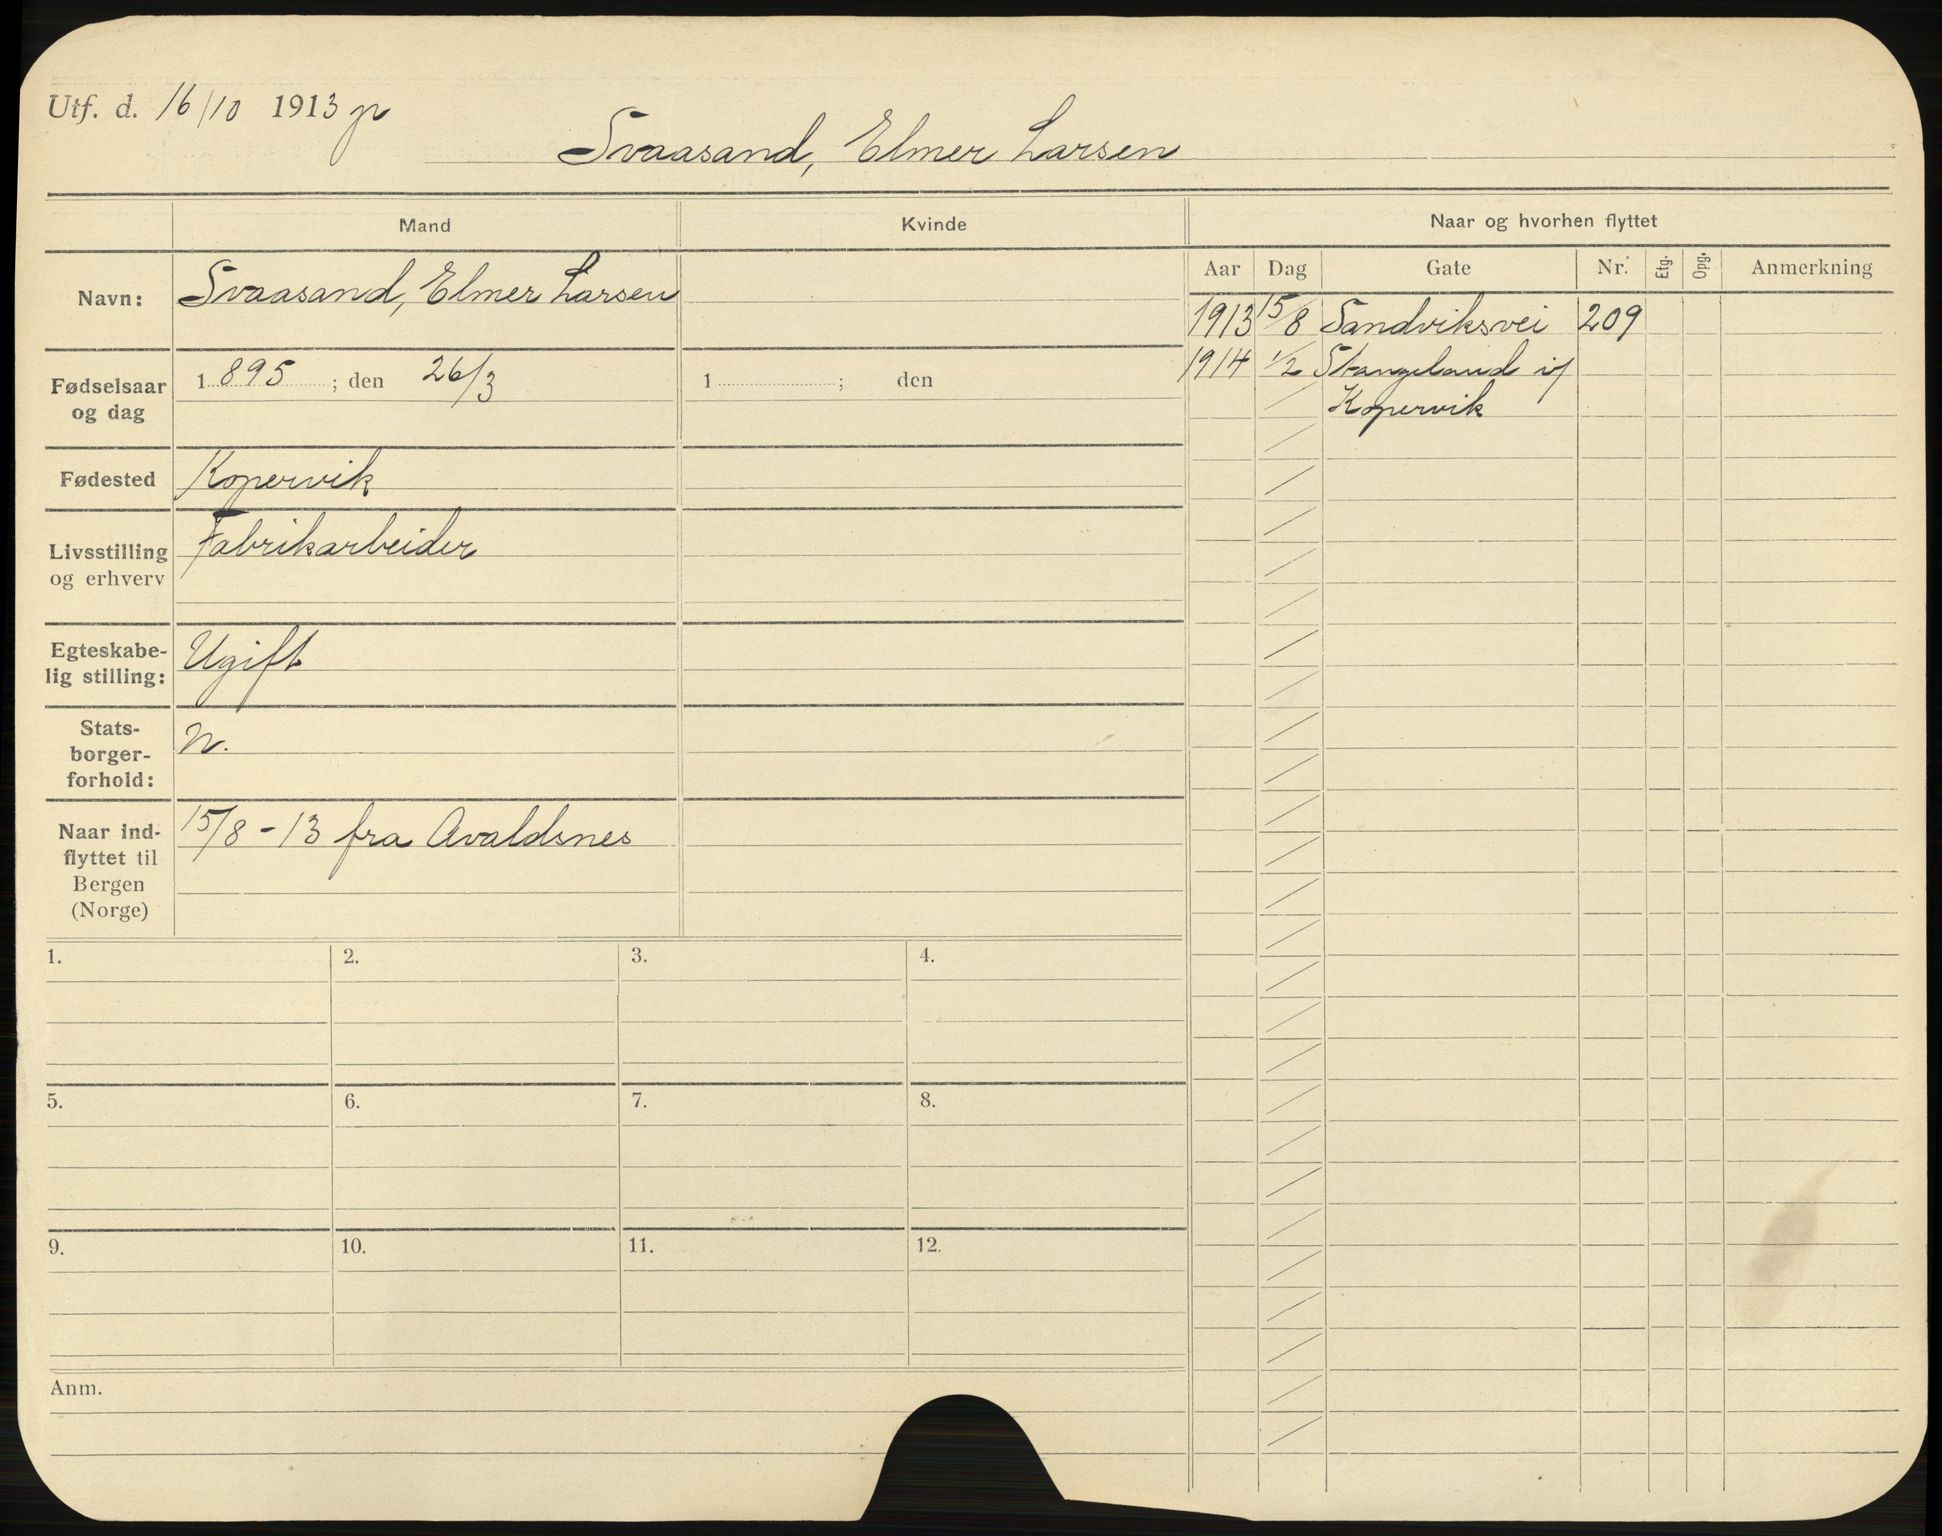 Utf. d. 16/10 1913
Svaasand, Elmer Larsen
Mand Kvinde Naar og hvorhen flyttet
Aar Dag Gate Nr. Etg. Opg. Anmerkning
Navn: Svaasand, Elmer Larsen
1913 15/8 Sandviksvei 209
1914 1/2 Stangeland i/
Kopervik
Fødselsaar
og dag
1895 ; den 26/3
1 ; den
Fødested Kopervik
Livsstilling
og erhverv
Fabrikarbeider
Egteskabe-
lig stilling:
Ugift
Stats-
borger-
forhold:
N.
Naar ind-
flyttet til
Bergen
(Norge)
15/8 - 13 fra Avaldsnes
1. 2. 3. 4.
5. 6. 7. 8.
9. 10. 11. 12.
Anm.